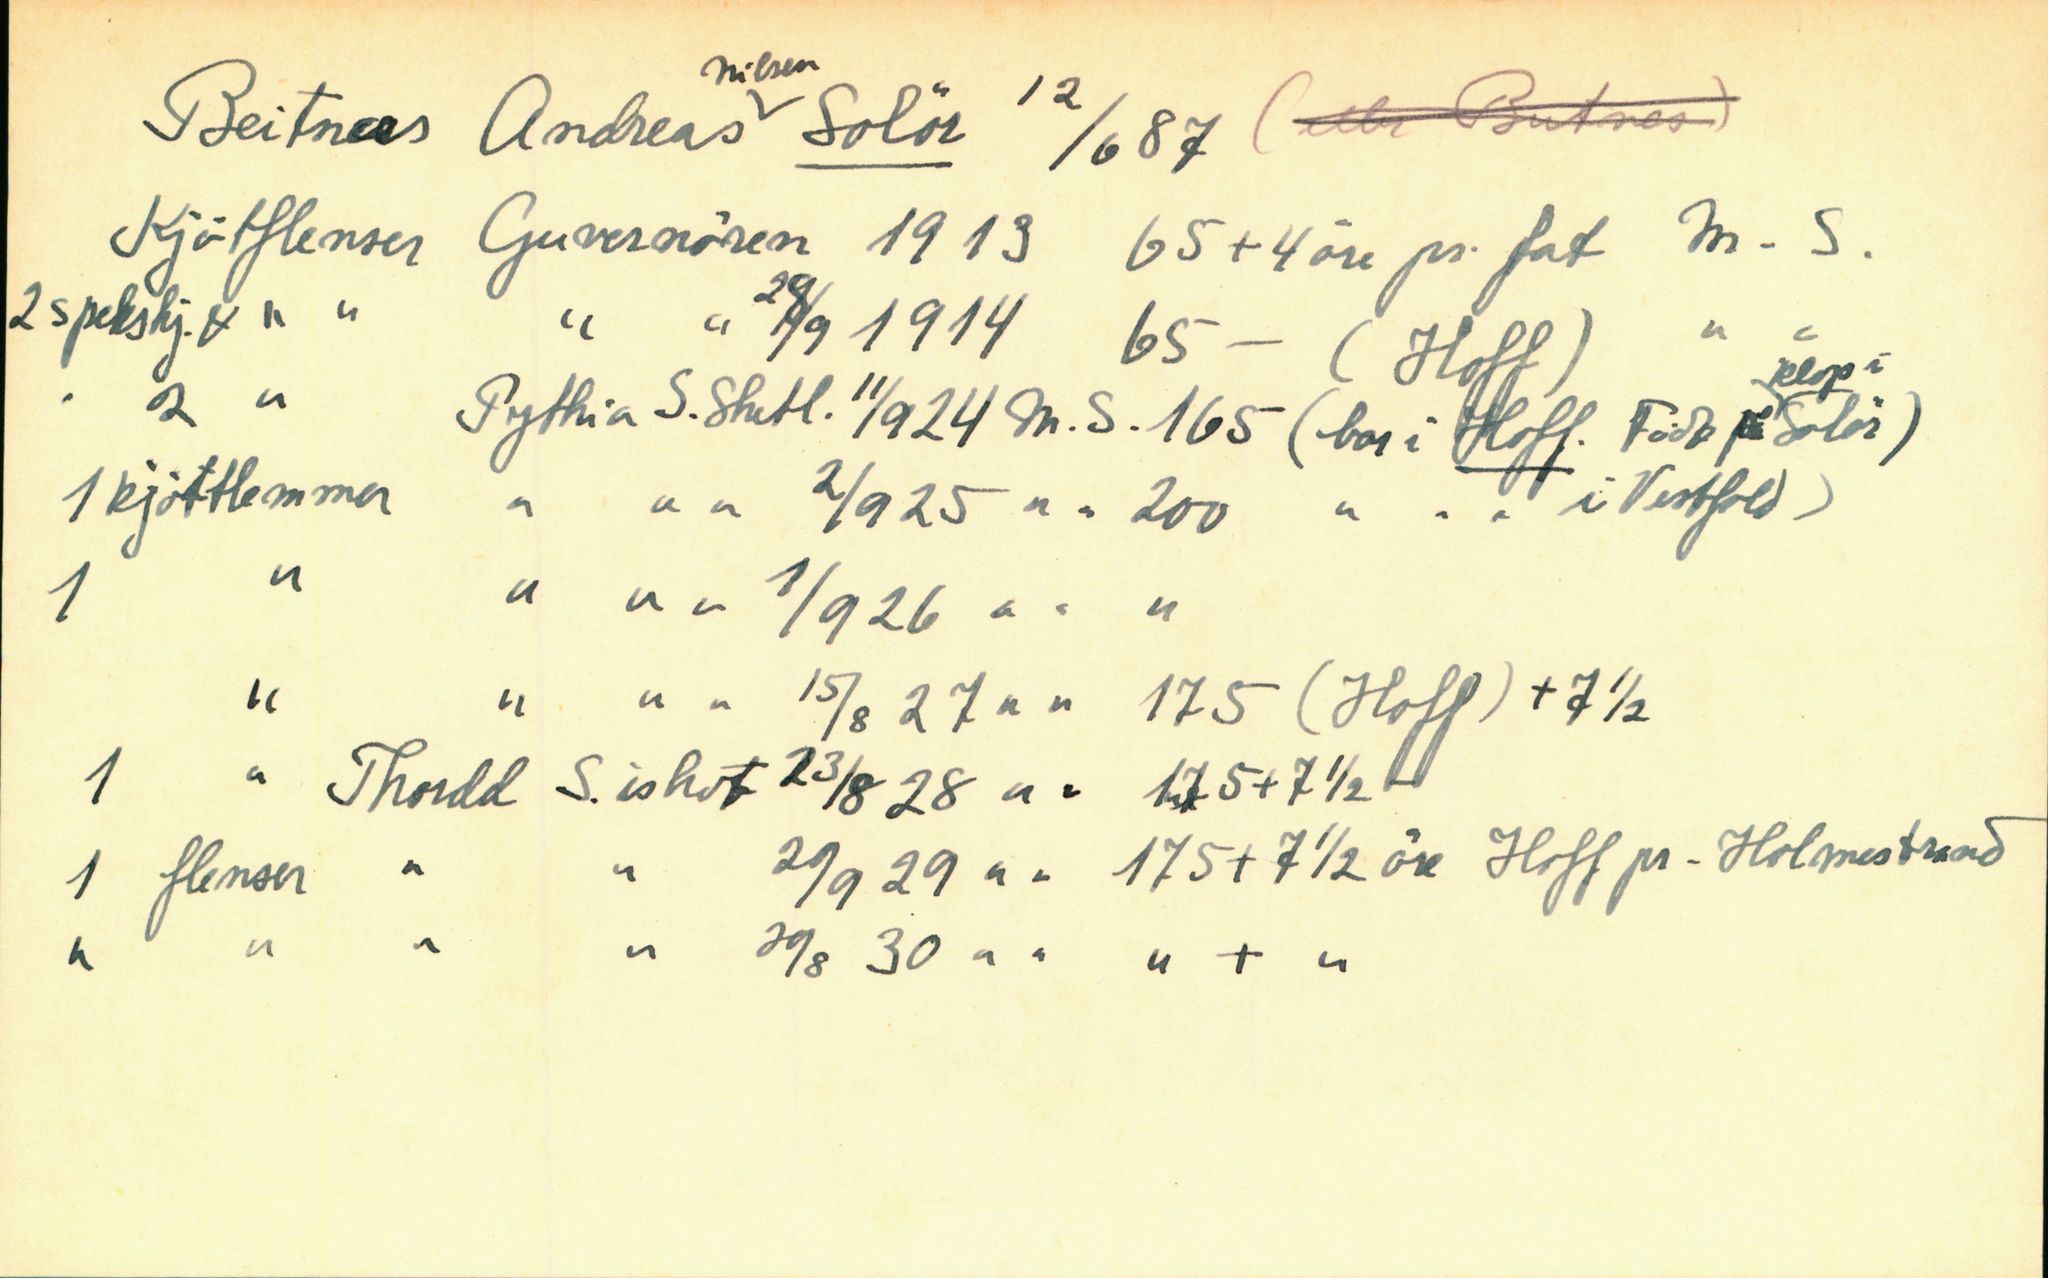 Beitnes Andreas Nilsen Solör 12/6 87 (eller Butnes)
Kjötflenser Guvernören 1913 65 + 4 öre pr. fat M - S.
2 spekskj. & " " " " 29/9 1914 65 - (Hoff) " "
" 2 " Pythia S. Shetl. 11/9 24 M. S. 165 (bor i Hoff. Född på Solör)
1 kjöttlemmer " " " 2/9 25 " " 200 " " " i Vestfold)
1 " " " " 1/9 26 " " "
" " " " 15/8 27 " " 175 (Hoff) + 7 1/2
1 " Thordd S. ishot 23/8 28 " " 175 + 7 1/2 -
1 flenser " " 29/9 29 " " 175 + 7 1/2 öre Hoff pr - Holmestrand
" " " " 29/8 30 " " " + "